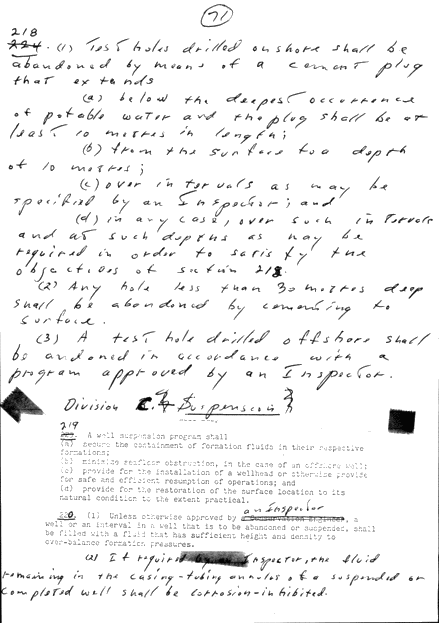 71
218
224. (1) Test holes drilled onshore shall be
abandoned by means of a cement plug
that extends
(a) below the deepest occurrence
of potable water and the plug shall be at
least 10 metres in length;
(b) from the surface to a depth
of 10 metres;
(c) over intervals as may be
specified by an Inspector; and
(d) in any case, over such intervals
and at such depths as may be
required in order to satisfy the
objectives of section 218.
(2) Any hole less than 30 metres deep
shall be abandoned by cementing to
surface.
(3) A test hole drilled offshore shall
be andoned in accordance with a
program approved by an Inspector.
Division Suspension
219
A well suspension program shall
(a) secure the containment of formation fluids in their respective
formations;
(b) minimize seafloor obstruction, in the case of an offshore well;
(c) provide for the installation of a wellhead or otherwise provide
for safe and efficient resumption of operations; and
(d) provide for the restoration of the surface location to its
natural condition to the extent practical.
an Inspector
220. (1) Unless otherwise approved by a Conservation Engineer, a
well or an interval in a well that is to be abandoned or suspended, shall
be filled with a fluid that has sufficient height and density to
over-balance formation pressures.
(2) If required by Inspector, the fluid
remaining in the casing-tubing annulus of a suspended or
completed well shall be corrosion-inhibited.